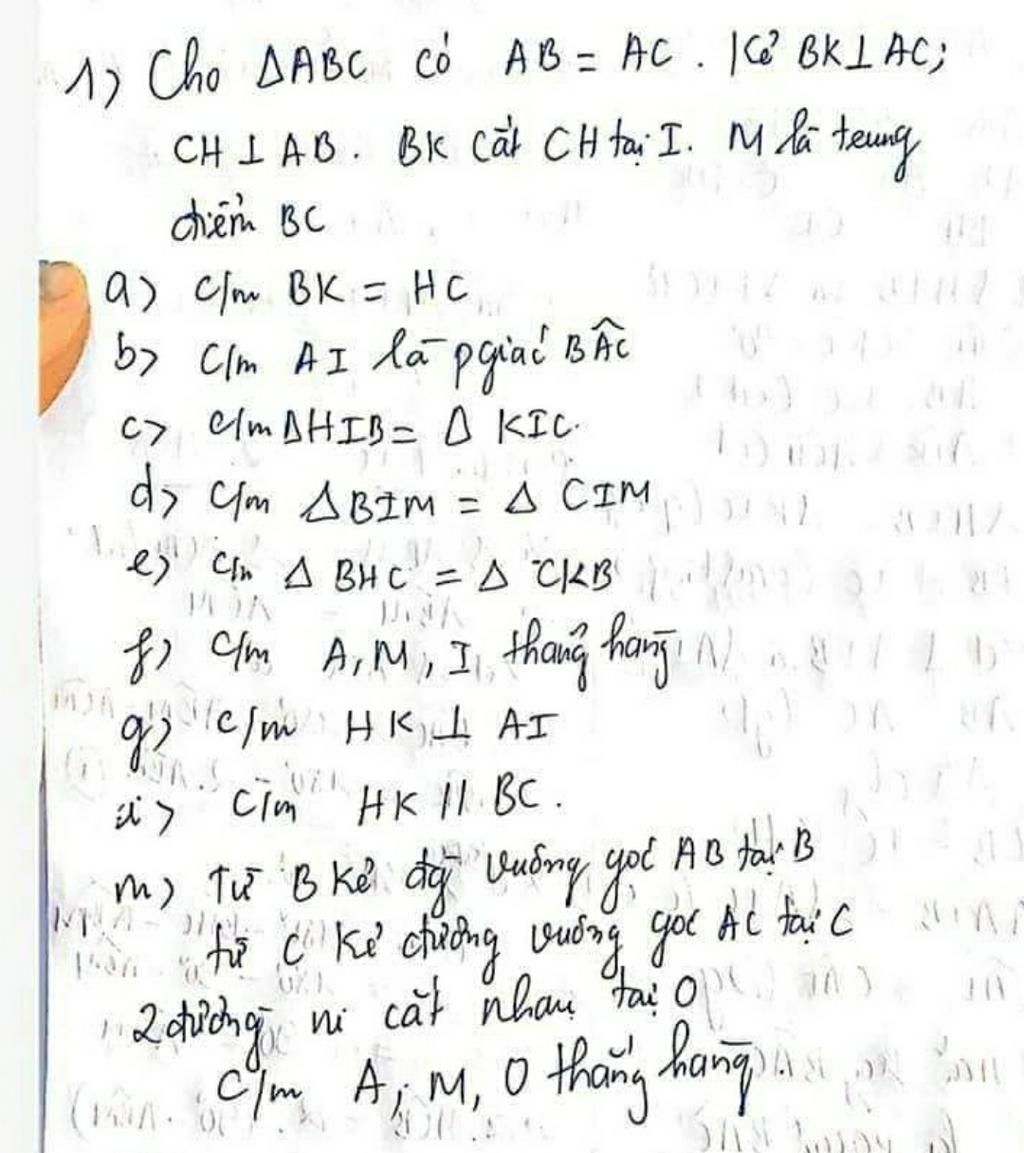 1) Cho ΔABC có AB = AC. Kẻ BK⊥AC;
CH⊥AB. BK cắt CH tại I. M là trung
điểm BC
a) c/m BK = HC
b) C/m AI là pgiác BÂC
c) c/m ΔHIB = Δ KIC.
d) C/m ΔBIM = Δ CIM
e) C/m Δ BHC = Δ CKB
f) C/m A, M, I, thẳng hàng
g) c/m HK ⊥ AI
i) C/m HK // BC.
m) Từ B kẻ đg vuông góc AB tại B
từ C kẻ đường vuông góc AC tại C
2 đường ni cắt nhau tại O
C/m A, M, O thẳng hàng